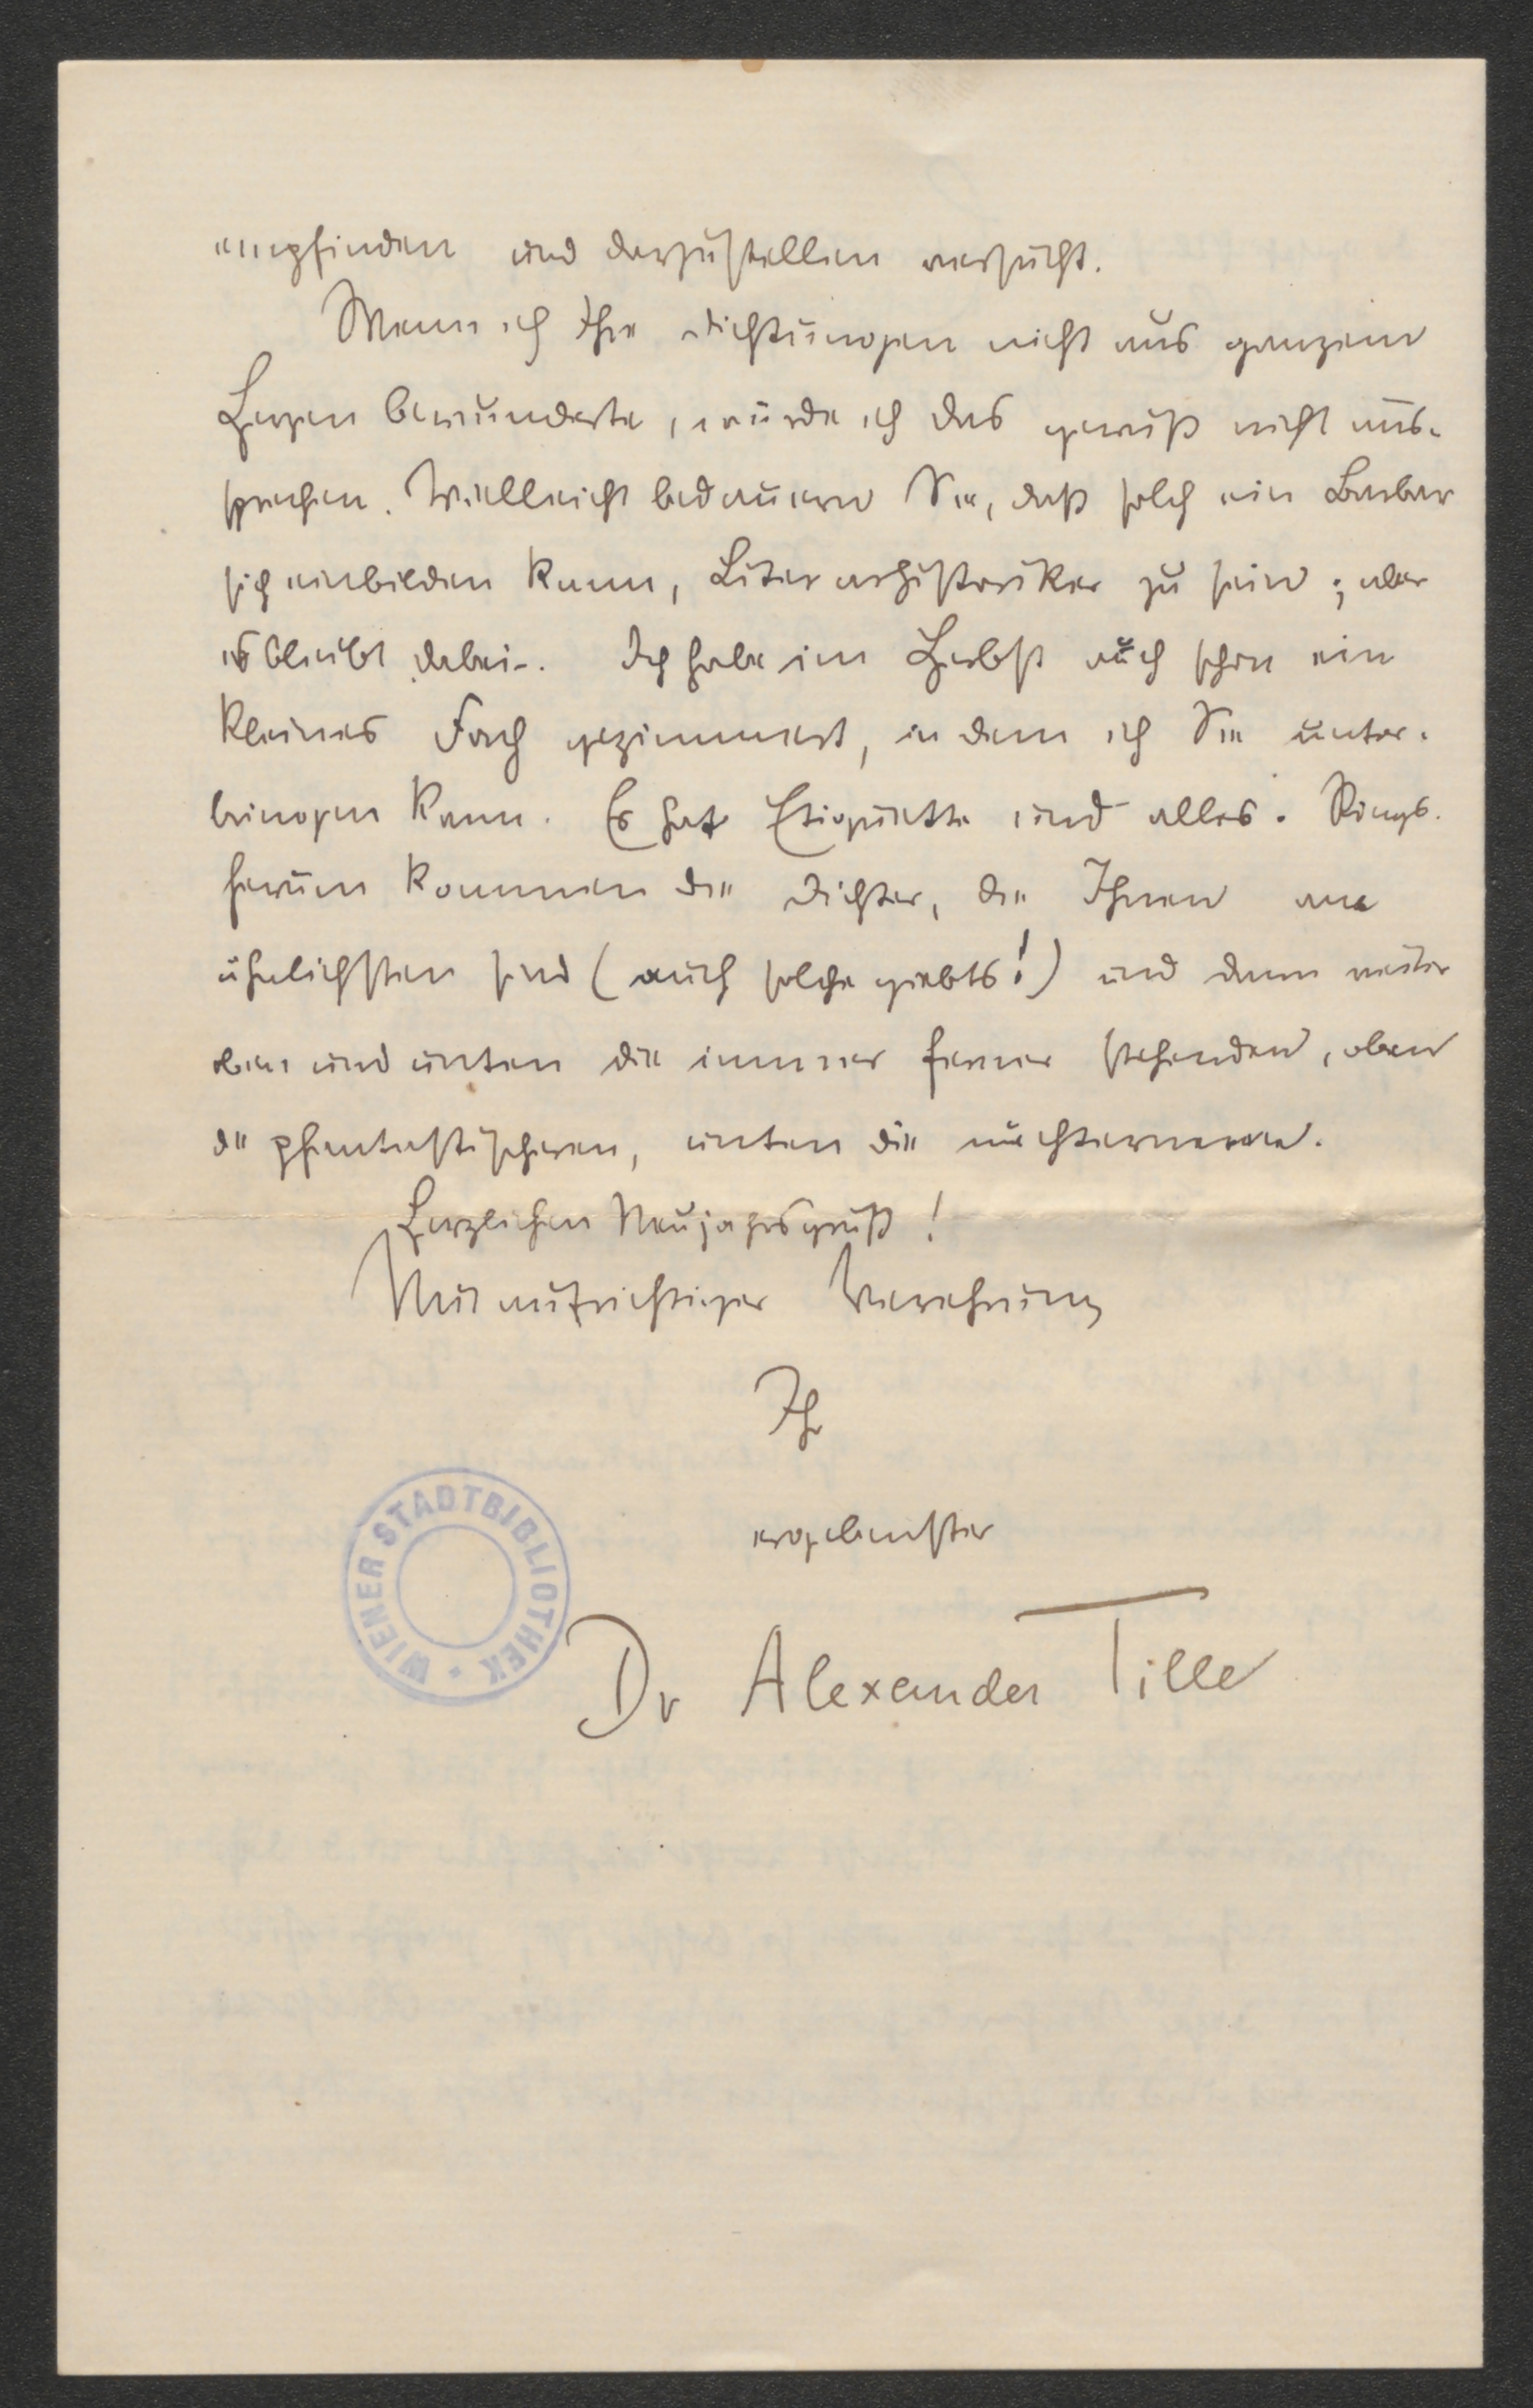 empfinden und darzustellen versucht.
Wenn ich Ihre Dichtungen nicht aus ganzem
Herzen bewunderte, würde ich das gewiß nicht aus-
sprechen. Vielleicht bedauern Sie, daß solch ein Barbar
sich einbilden kann, Literarhistoriker zu sein; aber
es bleibt dabei. Ich habe im Herbst auch schon ein
kleines Fach gezimmert, in dem ich Sie unter-
bringen kann. Es hat Etiquette und alles. Rings-
herum kommen die Dichter, die Ihnen am
ähnlichsten sind (auch solche giebts!) und dann weiter
oben und unten die immer ferner stehenden, oben
die phantastischeren, unten die nüchterneren.
Herzlichen Neujahrsgruß!
Mit aufrichtiger Verehrung
Ihr
ergebenster
WIENER STADTBIBLIOTHEK
Dr Alexander Tille